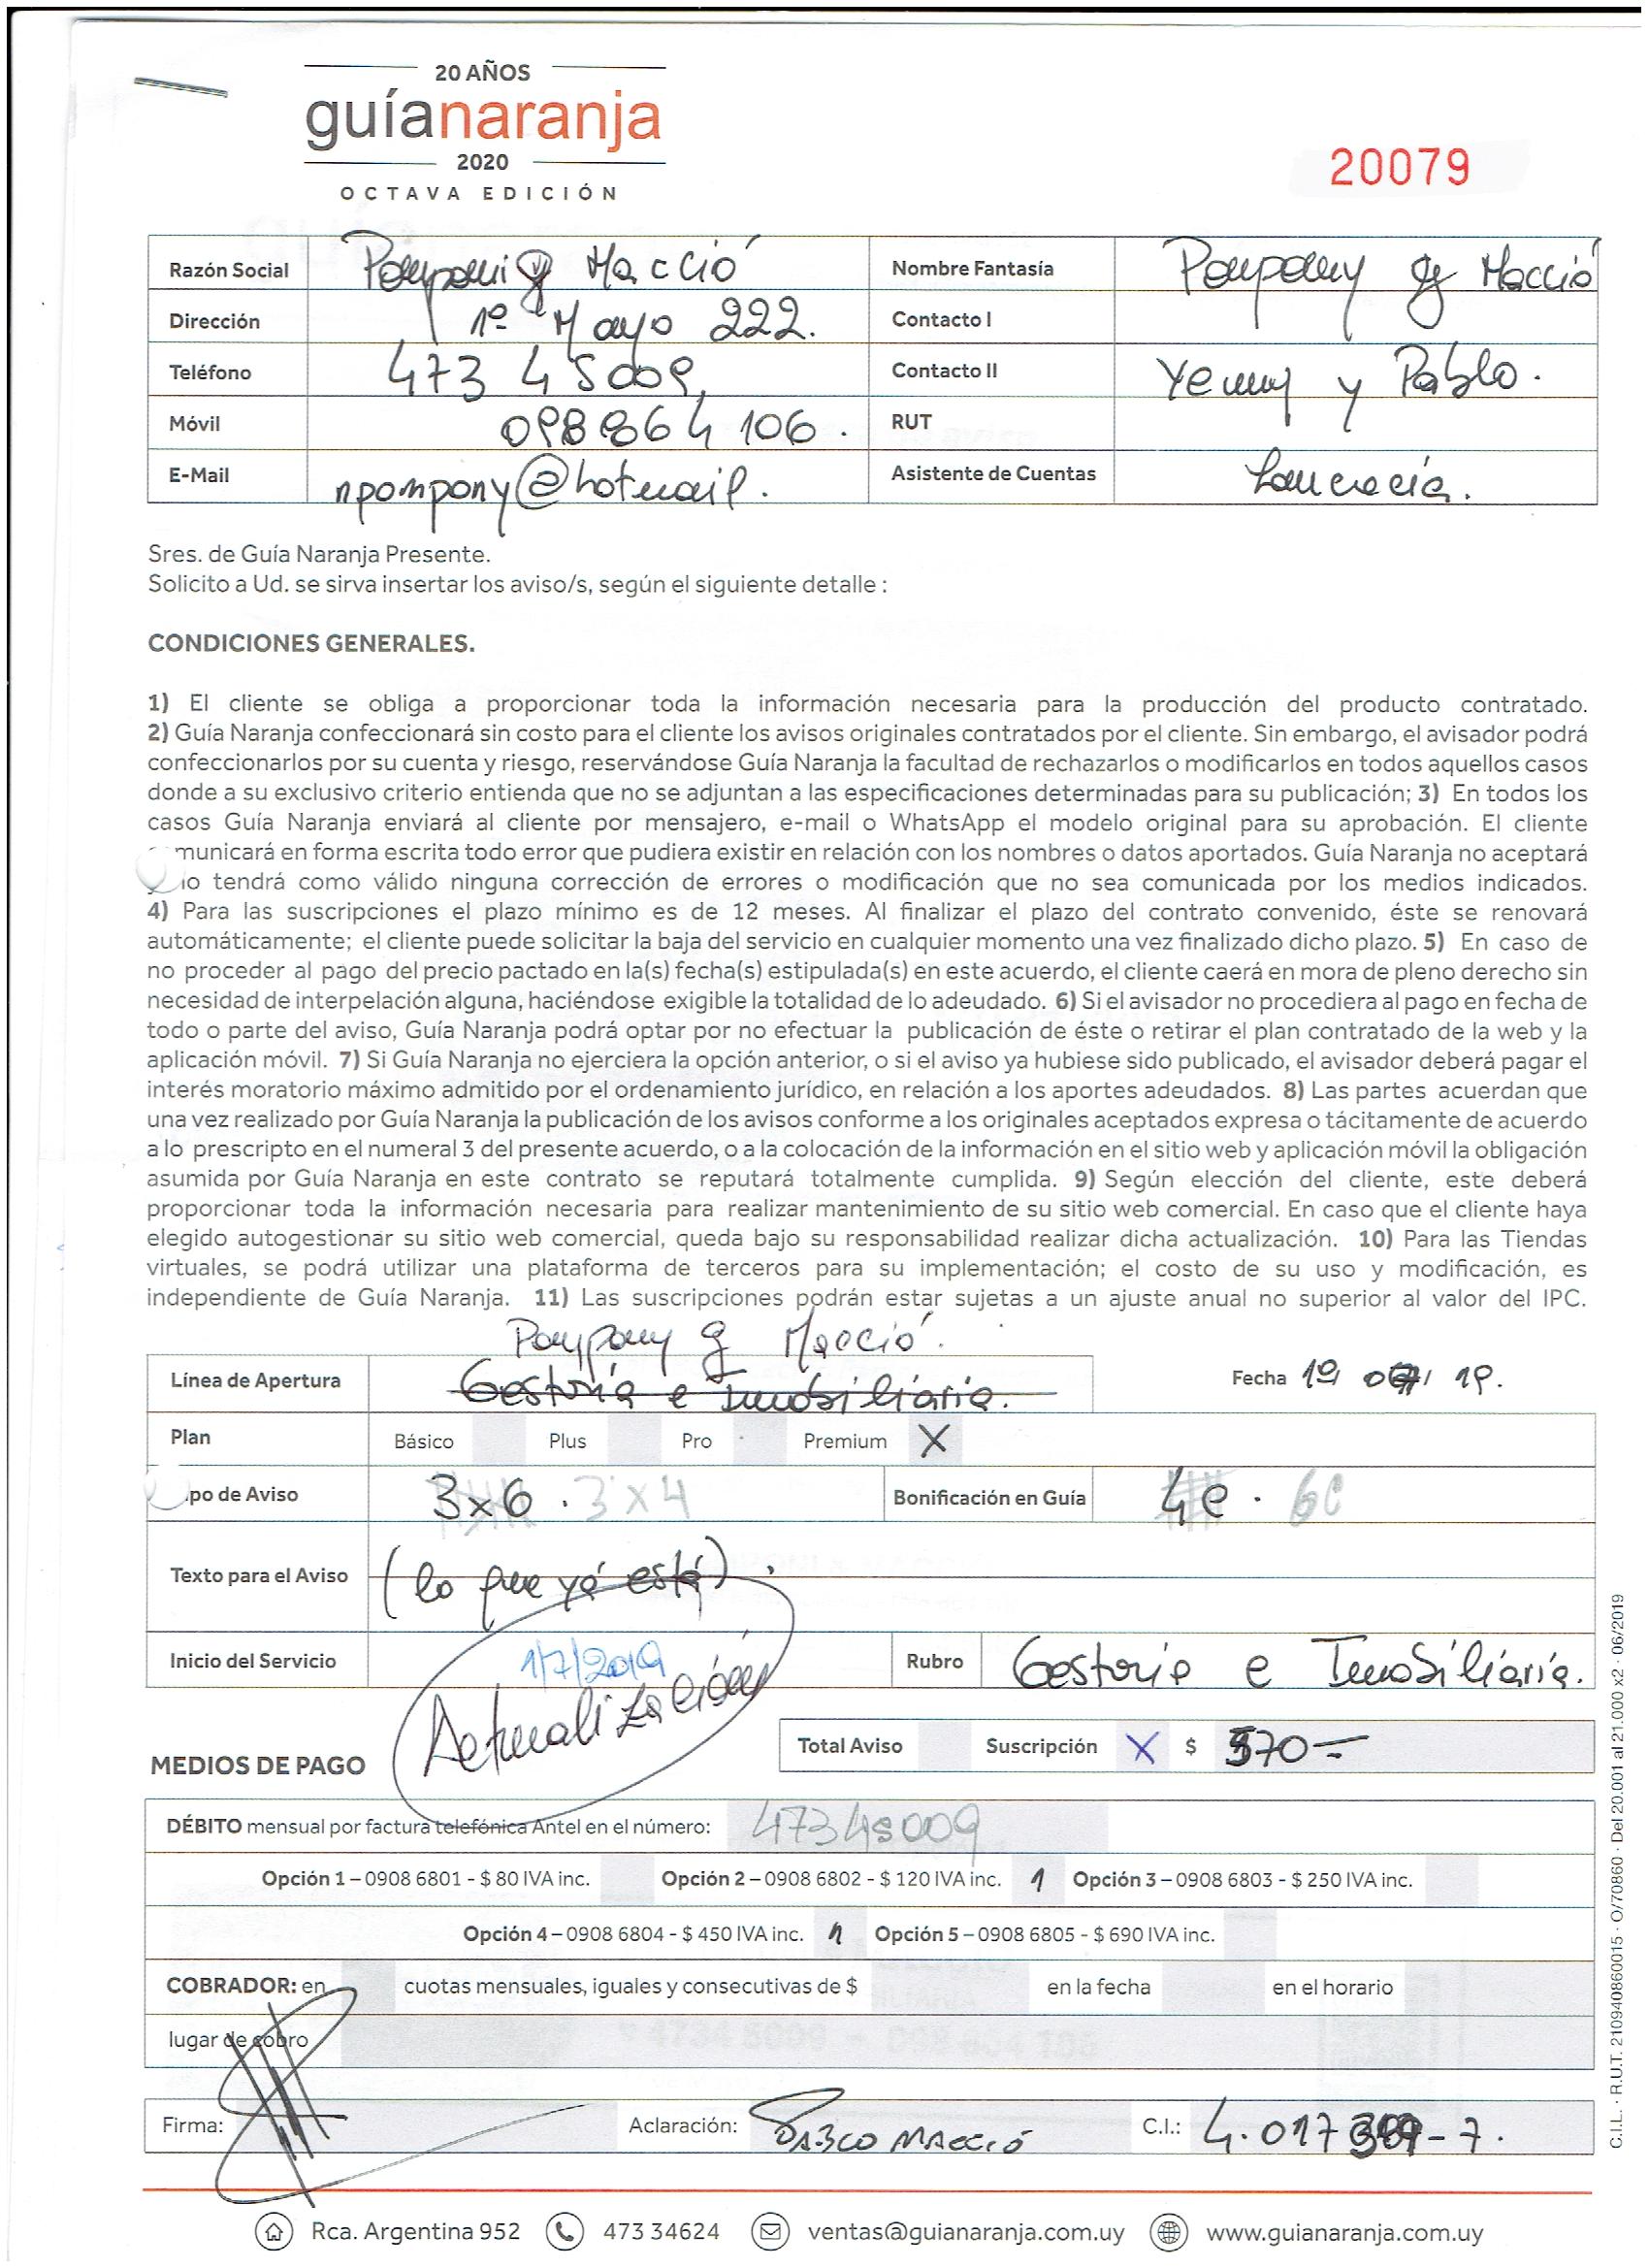 20 AÑOS
guíanaranja
2020
OCTAVA EDICIÓN
20079
Razón Social Pompani y Macció Nombre Fantasía Pompony y Macció
Dirección 1º Mayo 222. Contacto I
Teléfono 473 45009 Contacto II Yenny y Pablo.
Móvil 098864106. RUT
E-Mail npompony@hotmail. Asistente de Cuentas
Sres. de Guía Naranja Presente.
Solicito a Ud. se sirva insertar los aviso/s, según el siguiente detalle :
CONDICIONES GENERALES.
1) El cliente se obliga a proporcionar toda la información necesaria para la producción del producto contratado.
2) Guía Naranja confeccionará sin costo para el cliente los avisos originales contratados por el cliente. Sin embargo, el avisador podrá
confeccionarlos por su cuenta y riesgo, reservándose Guía Naranja la facultad de rechazarlos o modificarlos en todos aquellos casos
donde a su exclusivo criterio entienda que no se adjuntan a las especificaciones determinadas para su publicación; 3) En todos los
casos Guía Naranja enviará al cliente por mensajero, e-mail o WhatsApp el modelo original para su aprobación. El cliente
municará en forma escrita todo error que pudiera existir en relación con los nombres o datos aportados. Guía Naranja no aceptará
y no tendrá como válido ninguna corrección de errores o modificación que no sea comunicada por los medios indicados.
4) Para las suscripciones el plazo mínimo es de 12 meses. Al finalizar el plazo del contrato convenido, éste se renovará
automáticamente; el cliente puede solicitar la baja del servicio en cualquier momento una vez finalizado dicho plazo. 5) En caso de
no proceder al pago del precio pactado en la(s) fecha(s) estipulada(s) en este acuerdo, el cliente caerá en mora de pleno derecho sin
necesidad de interpelación alguna, haciéndose exigible la totalidad de lo adeudado. 6) Si el avisador no procediera al pago en fecha de
todo o parte del aviso, Guía Naranja podrá optar por no efectuar la publicación de éste o retirar el plan contratado de la web y la
aplicación móvil. 7) Si Guía Naranja no ejerciera la opción anterior, o si el aviso ya hubiese sido publicado, el avisador deberá pagar el
interés moratorio máximo admitido por el ordenamiento jurídico, en relación a los aportes adeudados. 8) Las partes acuerdan que
una vez realizado por Guía Naranja la publicación de los avisos conforme a los originales aceptados expresa o tácitamente de acuerdo
a lo prescripto en el numeral 3 del presente acuerdo, o a la colocación de la información en el sitio web y aplicación móvil la obligación
asumida por Guía Naranja en este contrato se reputará totalmente cumplida. 9) Según elección del cliente, este deberá
proporcionar toda la información necesaria para realizar mantenimiento de su sitio web comercial. En caso que el cliente haya
elegido autogestionar su sitio web comercial, queda bajo su responsabilidad realizar dicha actualización. 10) Para las Tiendas
virtuales, se podrá utilizar una plataforma de terceros para su implementación; el costo de su uso y modificación, es
independiente de Guía Naranja. 11) Las suscripciones podrán estar sujetas a un ajuste anual no superior al valor del IPC.
Pompony y Macció.
Línea de Apertura Gestoría e Inmobiliaria. Fecha 19.
Plan Básico Plus Pro Premium X
po de Aviso 3x6. 3x4 Bonificación en Guía 4c. 6c
Texto para el Aviso (lo que ya está).
Inicio del Servicio 1/7/2019 Rubro Gestoria e Inmobiliaria.
Actualización
Total Aviso Suscripción X $ 570-
MEDIOS DE PAGO
DÉBITO mensual por factura telefónica Antel en el número: 47345009
Opción 1 – 0908 6801 - $ 80 IVA inc. Opción 2 – 0908 6802 - $ 120 IVA inc. 1 Opción 3 – 0908 6803 - $ 250 IVA inc.
Opción 4 – 0908 6804 - $ 450 IVA inc. 1 Opción 5 – 0908 6805 - $ 690 IVA inc.
COBRADOR: en cuotas mensuales, iguales y consecutivas de $ en la fecha en el horario
lugar de cobro
Firma: Aclaración: PABLO MACCIÓ C.I.: 4.017 389-7.
Rca. Argentina 952 473 34624 ventas@guianaranja.com.uy www.guianaranja.com.uy
C.I.L. · R.U.T. 210940860015 · O/70860 · Del 20.001 al 21.000 x2 · 06/2019